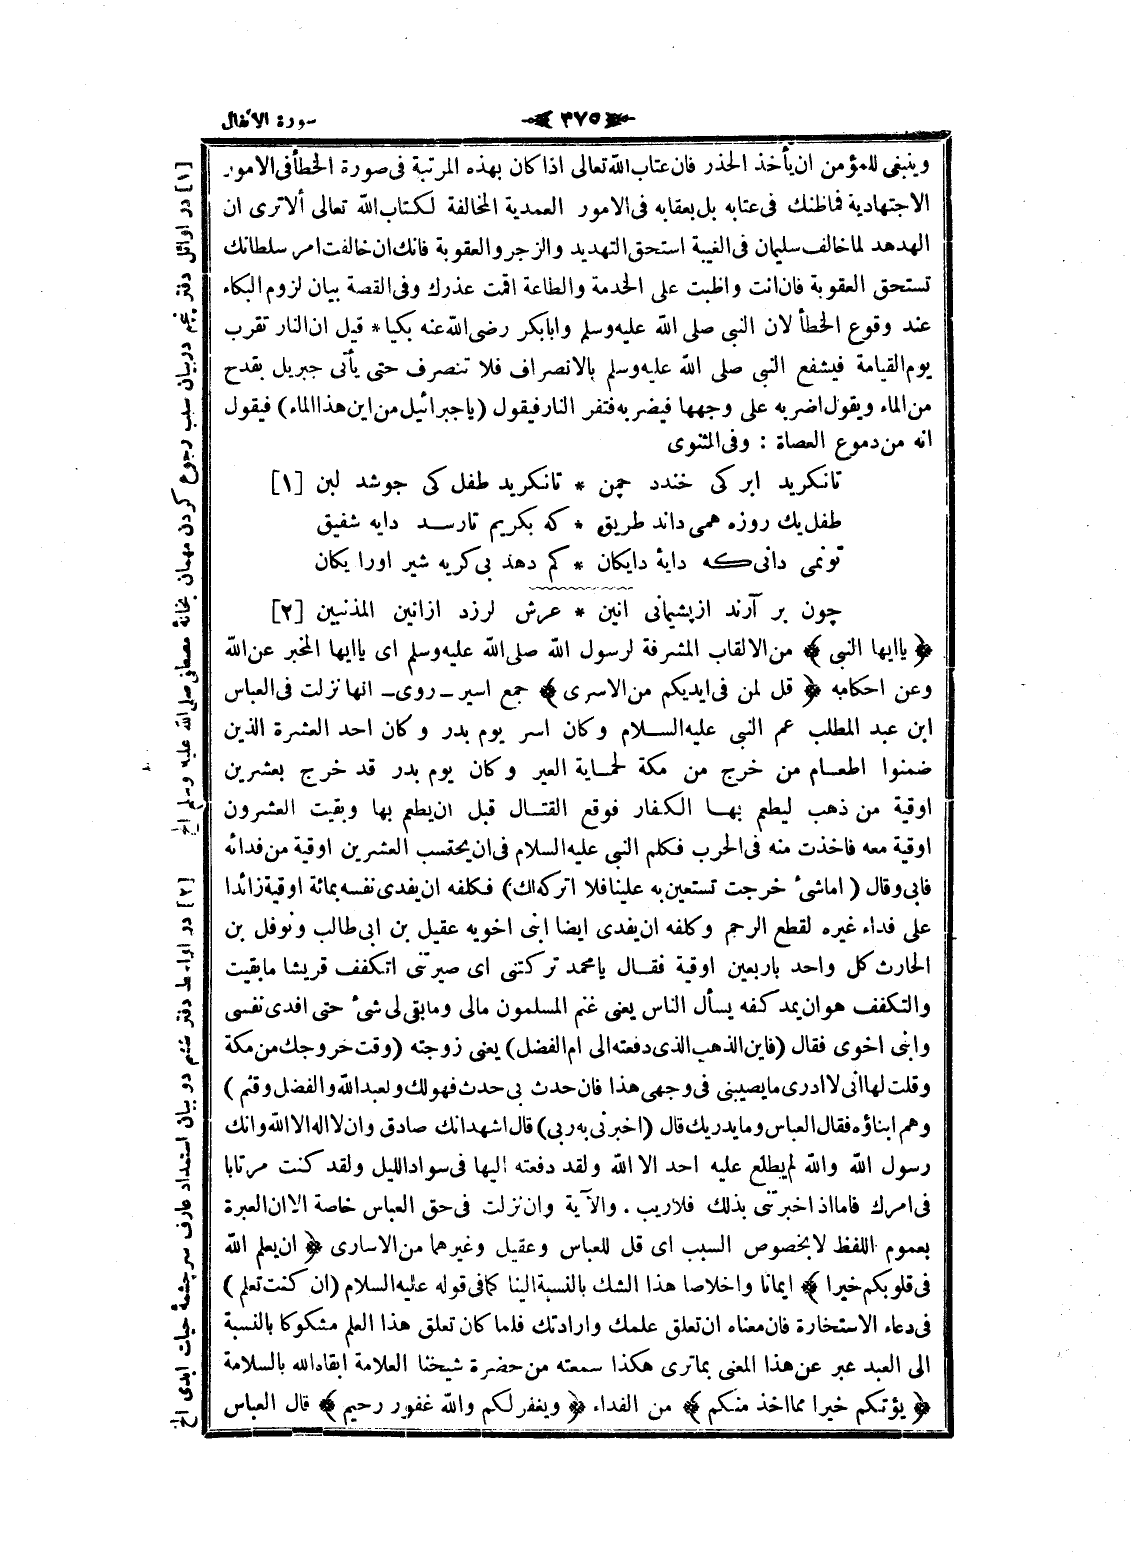 سورة الانفال
٣٧٥
وينبغى للمؤمن ان يأخذ الحذر فان عتاب الله تعالى اذا كان بهذه المرتبة فى صورة الخطأ فى الامور
الاجتهادية فماظنك فى عتابه بل بعقابه فى الامور العمدية المخالفة لكتاب الله تعالى ألا ترى ان
الهدهد لما خالف سليمان فى الغيبة استحق التهديد والزجر والعقوبة فانك ان خالفت امر سلطانك
تستحق العقوبة فان انت واظبت على الخدمة والطاعة اقمت عذرك وفى القصة بيان لزوم البكاء
عند وقوع الخطأ لان النبى صلى الله عليه وسلم وابابكر رضى الله عنه بكيا * قيل ان النار تقرب
يوم القيامة فيشفع النبى صلى الله عليه وسلم بالانصراف فلا تنصرف حتى يأتى جبريل بقدح
من الماء ويقول اضربه على وجهها فيضربه فتفر النار فيقول (يا جبرائيل من اين هذا الماء) فيقول
انه من دموع العصاة : وفى المثنوى
تانكريد ابر كى خندد چمن * تانكريد طفل كى جوشد لبن [١]
طفل يك روزه همى داند طريق * كه بكريم تارسد دايه شفيق
تونمى دانى كه دايۀ دايكان * كم دهد بى كريه شير اورا يكان
چون بر آرند ازپشيمانى انين * عرش لرزد ازانين المذنبين [٢]
﴿ يا ايها النبى ﴾ من الالقاب المشرفة لرسول الله صلى الله عليه وسلم اى يا ايها المخبر عن الله
وعن احكامه ﴿ قل لمن فى ايديكم من الاسرى ﴾ جمع اسير ـ روى ـ انها نزلت فى العباس
ابن عبد المطلب عم النبى عليه السلام وكان اسر يوم بدر وكان احد العشرة الذين
ضمنوا اطعام من خرج من مكة لحماية العير وكان يوم بدر قد خرج بعشرين
اوقية من ذهب ليطعم بها الكفار فوقع القتال قبل ان يطعم بها وبقيت العشرون
اوقية معه فاخذت منه فى الحرب فكلم النبى عليه السلام فى ان يحتسب العشرين اوقية من فدائه
فابى وقال ( اما شىء خرجت تستعين به علينا فلا اتركه لك ) فكلفه ان يفدى نفسه بمائة اوقية زائدا
على فداء غيره لقطع الرحم وكلفه ان يفدى ايضا ابنى اخويه عقيل بن ابى طالب ونوفل بن
الحارث كل واحد باربعين اوقية فقال يا محمد تركتنى اى صيرتنى اتكفف قريشا ما بقيت
والتكفف هو ان يمد كفه يسأل الناس يعنى غنم المسلمون مالى وما بقى لى شىء حتى افدى نفسى
وابنى اخوى فقال (فاين الذهب الذى دفعته الى ام الفضل) يعنى زوجته (وقت خروجك من مكة
وقلت لها انى لا ادرى ما يصيبنى فى وجهى هذا فان حدث بى حدث فهو لك ولعبد الله والفضل وقثم )
وهم ابناؤه فقال العباس وما يدريك قال (اخبرنى به ربى) قال اشهد انك صادق وان لا اله الا الله وانك
رسول الله والله لم يطلع عليه احد الا الله ولقد دفعته اليها فى سواد الليل ولقد كنت مرتابا
فى امرك فاما اذ اخبرتنى بذلك فلا ريب . والآية وان نزلت فى حق العباس خاصة الا ان العبرة
بعموم اللفظ لا بخصوص السبب اى قل للعباس وعقيل وغيرهما من الاسارى ﴿ ان يعلم الله
فى قلوبكم خيرا ﴾ ايمانا واخلاصا هذا الشك بالنسبة الينا كما فى قوله عليه السلام (ان كنت تعلم )
فى دعاء الاستخارة فان معناه ان تعلق علمك وارادتك فلما كان تعلق هذا العلم مشكوكا بالنسبة
الى العبد عبر عن هذا المعنى بما ترى هكذا سمعته من حضرة شيخنا العلامة ابقاه الله بالسلامة
﴿ يؤتكم خيرا مما اخذ منكم ﴾ من الفداء ﴿ ويغفر لكم والله غفور رحيم ﴾ قال العباس
[١] در اوائل دفتر پنجم در بيان سبب رجوع كردن مهمان بخانۀ مصطفى صلى الله عليه وسلم الخ
[٢] در اواسط دفتر ششم در بيان استمداد عارف سرچشمۀ حيات ابدى الخ